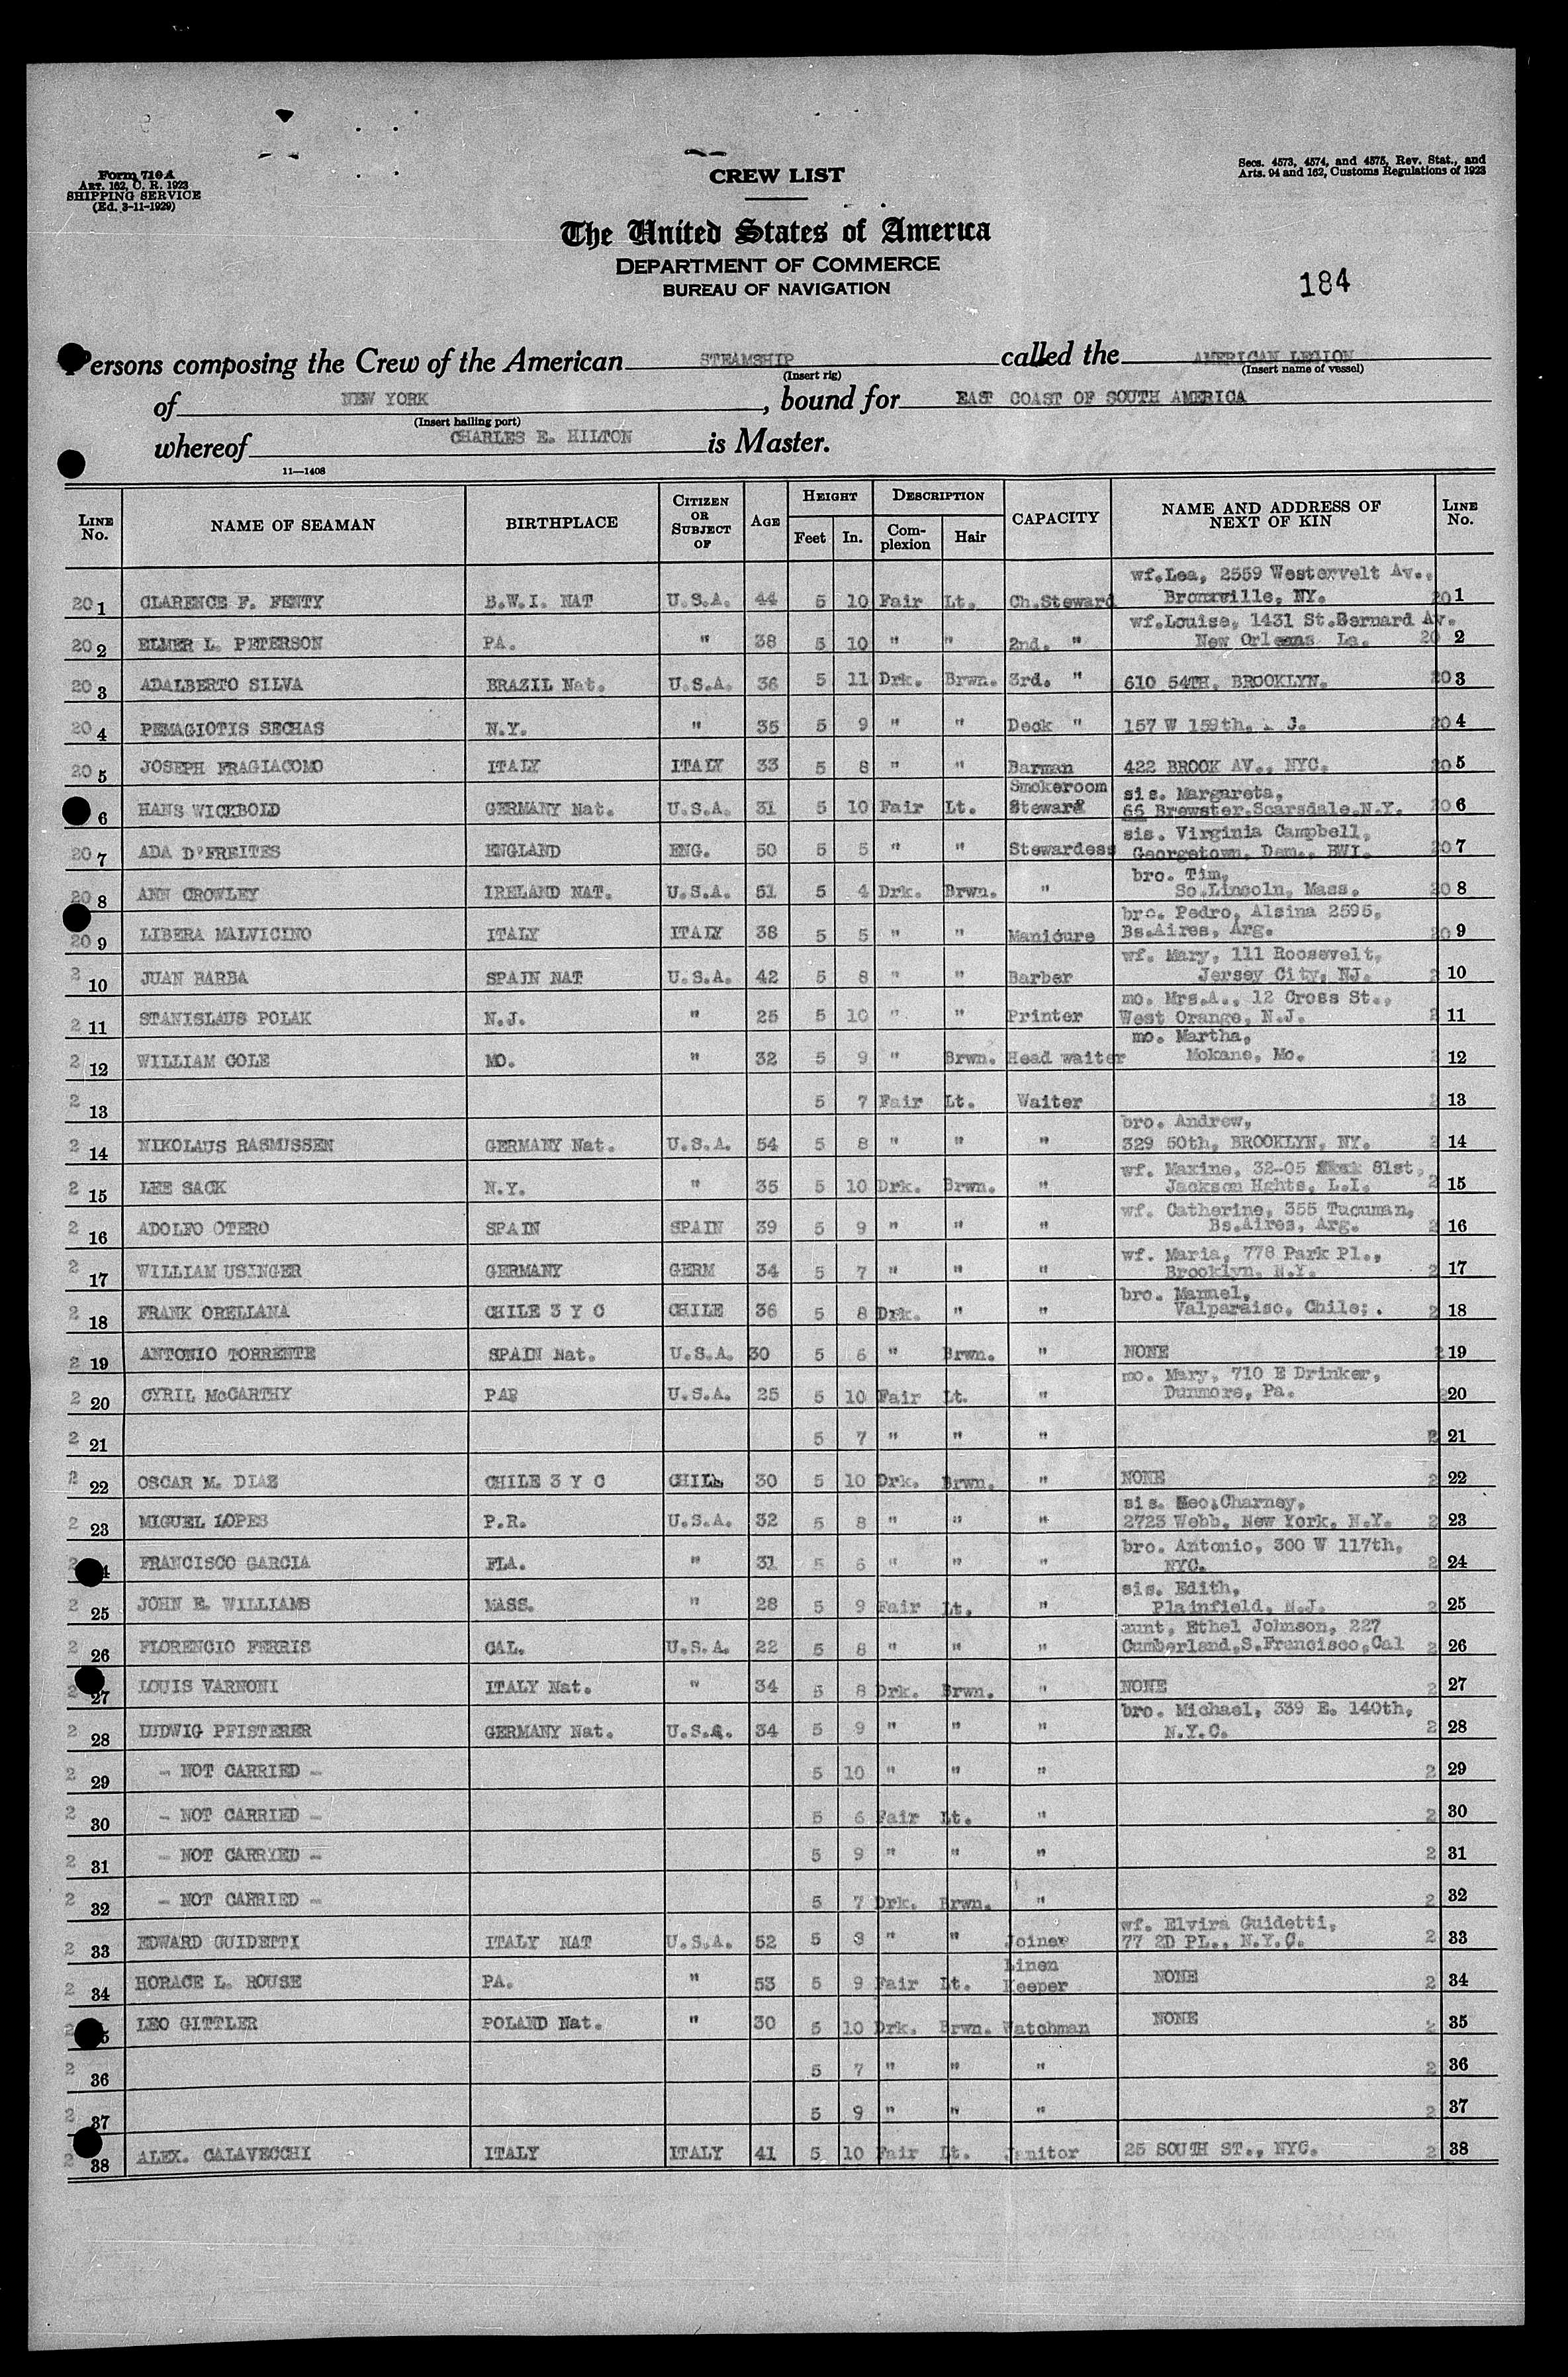 Form 710 A
ART. 162, C. R. 1923
SHIPPING SERVICE
(Ed. 3-11-1929)
CREW LIST
Secs. 4573, 4574, and 4575, Rev. Stat., and
Arts. 94 and 162, Customs Regulations of 1923
The United States of America
DEPARTMENT OF COMMERCE
BUREAU OF NAVIGATION
184
Persons composing the Crew of the American STEAMSHIP called the AMERICAN LEGION
(Insert rig) (Insert name of vessel)
of NEW YORK, bound for EAST COAST OF SOUTH AMERICA
(Insert hailing port)
whereof CHARLES E. HILTON is Master.
11—1408
LINE No. NAME OF SEAMAN BIRTHPLACE CITIZEN OR SUBJECT OF AGE HEIGHT Feet In. DESCRIPTION Complexion Hair CAPACITY NAME AND ADDRESS OF NEXT OF KIN LINE No.
wf.Lea, 2559 Westervelt Av.,
20 1 CLARENCE F. FENTY B.W.I. NAT U.S.A. 44 5 10 Fair Lt. Ch.Steward Bronxville, NY. 20 1
wf.Louise, 1431 St.Bernard Av.
20 2 ELMER L. PETERSON PA. " 38 5 10 " " 2nd. " New Orleans La. 20 2
20 3 ADALBERTO SILVA BRAZIL Nat. U.S.A. 36 5 11 Drk. Brwn. 3rd. " 610 54TH, BROOKLYN. 20 3
20 4 PEMAGIOTIS SECHAS N.Y. " 35 5 9 " " Deck " 157 W 159th, J. 20 4
20 5 JOSEPH FRAGIACOMO ITALY ITALY 33 5 8 " " Barman 422 BROOK AV., NYC. 20 5
Smokeroom sis. Margareta,
6 HANS WICKBOLD GERMANY Nat. U.S.A. 31 5 10 Fair Lt. Steward 66 Brewster,Scarsdale,N.Y. 20 6
sis. Virginia Campbell,
20 7 ADA D'FREITES ENGLAND ENG. 50 5 5 " " Stewardess Georgetown, Dem., BWI. 20 7
bro. Tim,
20 8 ANN CROWLEY IRELAND NAT. U.S.A. 51 5 4 Drk. Brwn. " So.Lincoln, Mass. 20 8
bro. Pedro, Alsina 2595,
20 9 LIBERA MALVICINO ITALY ITALY 38 5 5 " " Manicure Bs.Aires, Arg. 20 9
wf. Mary, 111 Roosevelt,
2 10 JUAN BARBA SPAIN NAT U.S.A. 42 5 8 " " Barber Jersey City, NJ. 2 10
mo. Mrs.A., 12 Cross St.,
2 11 STANISLAUS POLAK N.J. " 25 5 10 " " Printer West Orange, N.J. 2 11
mo. Martha,
2 12 WILLIAM COLE MO. " 32 5 9 " Brwn. Head waiter Mokane, Mo. 2 12
2 13 5 7 Fair Lt. Waiter 2 13
bro. Andrew,
2 14 NIKOLAUS RASMUSSEN GERMANY Nat. U.S.A. 54 5 8 " " " 329 50th, BROOKLYN, NY. 2 14
wf. Maxine, 32-05 81st,
2 15 LEE SACK N.Y. " 35 5 10 Drk. Brwn. " Jackson Hghts, L.I. 2 15
wf. Catherine, 355 Tucuman,
2 16 ADOLFO OTERO SPAIN SPAIN 39 5 9 " " " Bs.Aires, Arg. 2 16
wf. Maria, 778 Park Pl.,
2 17 WILLIAM USINGER GERMANY GERM 34 5 7 " " " Brooklyn, N.Y. 2 17
bro. Manuel,
2 18 FRANK ORELLANA CHILE 3 Y C CHILE 36 5 8 Drk. " " Valparaiso, Chile;. 2 18
2 19 ANTONIO TORRENTE SPAIN Nat. U.S.A. 30 5 6 " Brwn. " NONE 2 19
mo. Mary, 710 E Drinker,
2 20 CYRIL McCARTHY PA U.S.A. 25 5 10 Fair Lt. " Dunmore, Pa. 20
2 21 5 7 " " " 2 21
2 22 OSCAR M. DIAZ CHILE 3 Y C CHILE 30 5 10 Drk. Brwn. " NONE 2 22
sis. Charney,
2 23 MIGUEL LOPES P.R. U.S.A. 32 5 8 " " " 2723 Webb, New York, N.Y. 2 23
bro. Antonio, 300 W 117th,
2 4 FRANCISCO GARCIA FLA. " 31 5 6 " " " NYC. 2 24
sis. Edith,
2 25 JOHN E. WILLIAMS MASS. " 28 5 9 Fair Lt. " Plainfield, N.J. 2 25
aunt, Ethel Johnson, 227
2 26 FLORENCIO FERRIS CAL. U.S.A. 22 5 8 " " " Cumberland,S.Francisco,Cal 2 26
2 27 LOUIS VARNONI ITALY Nat. " 34 5 8 Drk. Brwn. " NONE 2 27
bro. Michael, 339 E. 140th,
2 28 LUDWIG PFISTERER GERMANY Nat. U.S.A. 34 5 9 " " " N.Y.C. 2 28
2 29 - NOT CARRIED - 5 10 " " " 2 29
2 30 - NOT CARRIED - 5 6 Fair Lt. " 2 30
2 31 - NOT CARRYED - 5 9 " " " 2 31
2 32 - NOT CARRIED - 5 7 Drk. Brwn. " 2 32
wf. Elvira Guidetti,
2 33 EDWARD GUIDETTI ITALY NAT U.S.A. 52 5 3 " " Joiner 77 2D PL., N.Y.C. 2 33
Linen
2 34 HORACE L. ROUSE PA. " 53 5 9 Fair Lt. Keeper NONE 2 34
2 5 LEO GITTLER POLAND Nat. " 30 5 10 Drk. Brwn. Watchman NONE 2 35
2 36 5 7 " " " 2 36
2 37 5 9 " " " 2 37
2 38 ALEX. CALAVECCHI ITALY ITALY 41 5 10 Fair Lt. Janitor 25 SOUTH ST., NYC. 2 38